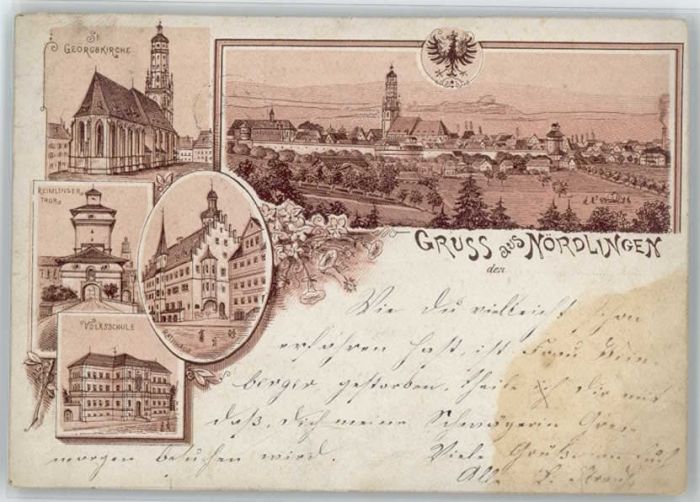 St.
GEORGSKIRCHE
REIMLINGER
THOR
VOLKSSCHULE
GRUSS aus NÖRDLINGEN
den
Wie Du vielleicht schon
erfahren hast, ist Frau
berger gestorben. theile Dir mit
daß, Dich meine Schwägerin
morgen besuchen wird. Viele Grüße